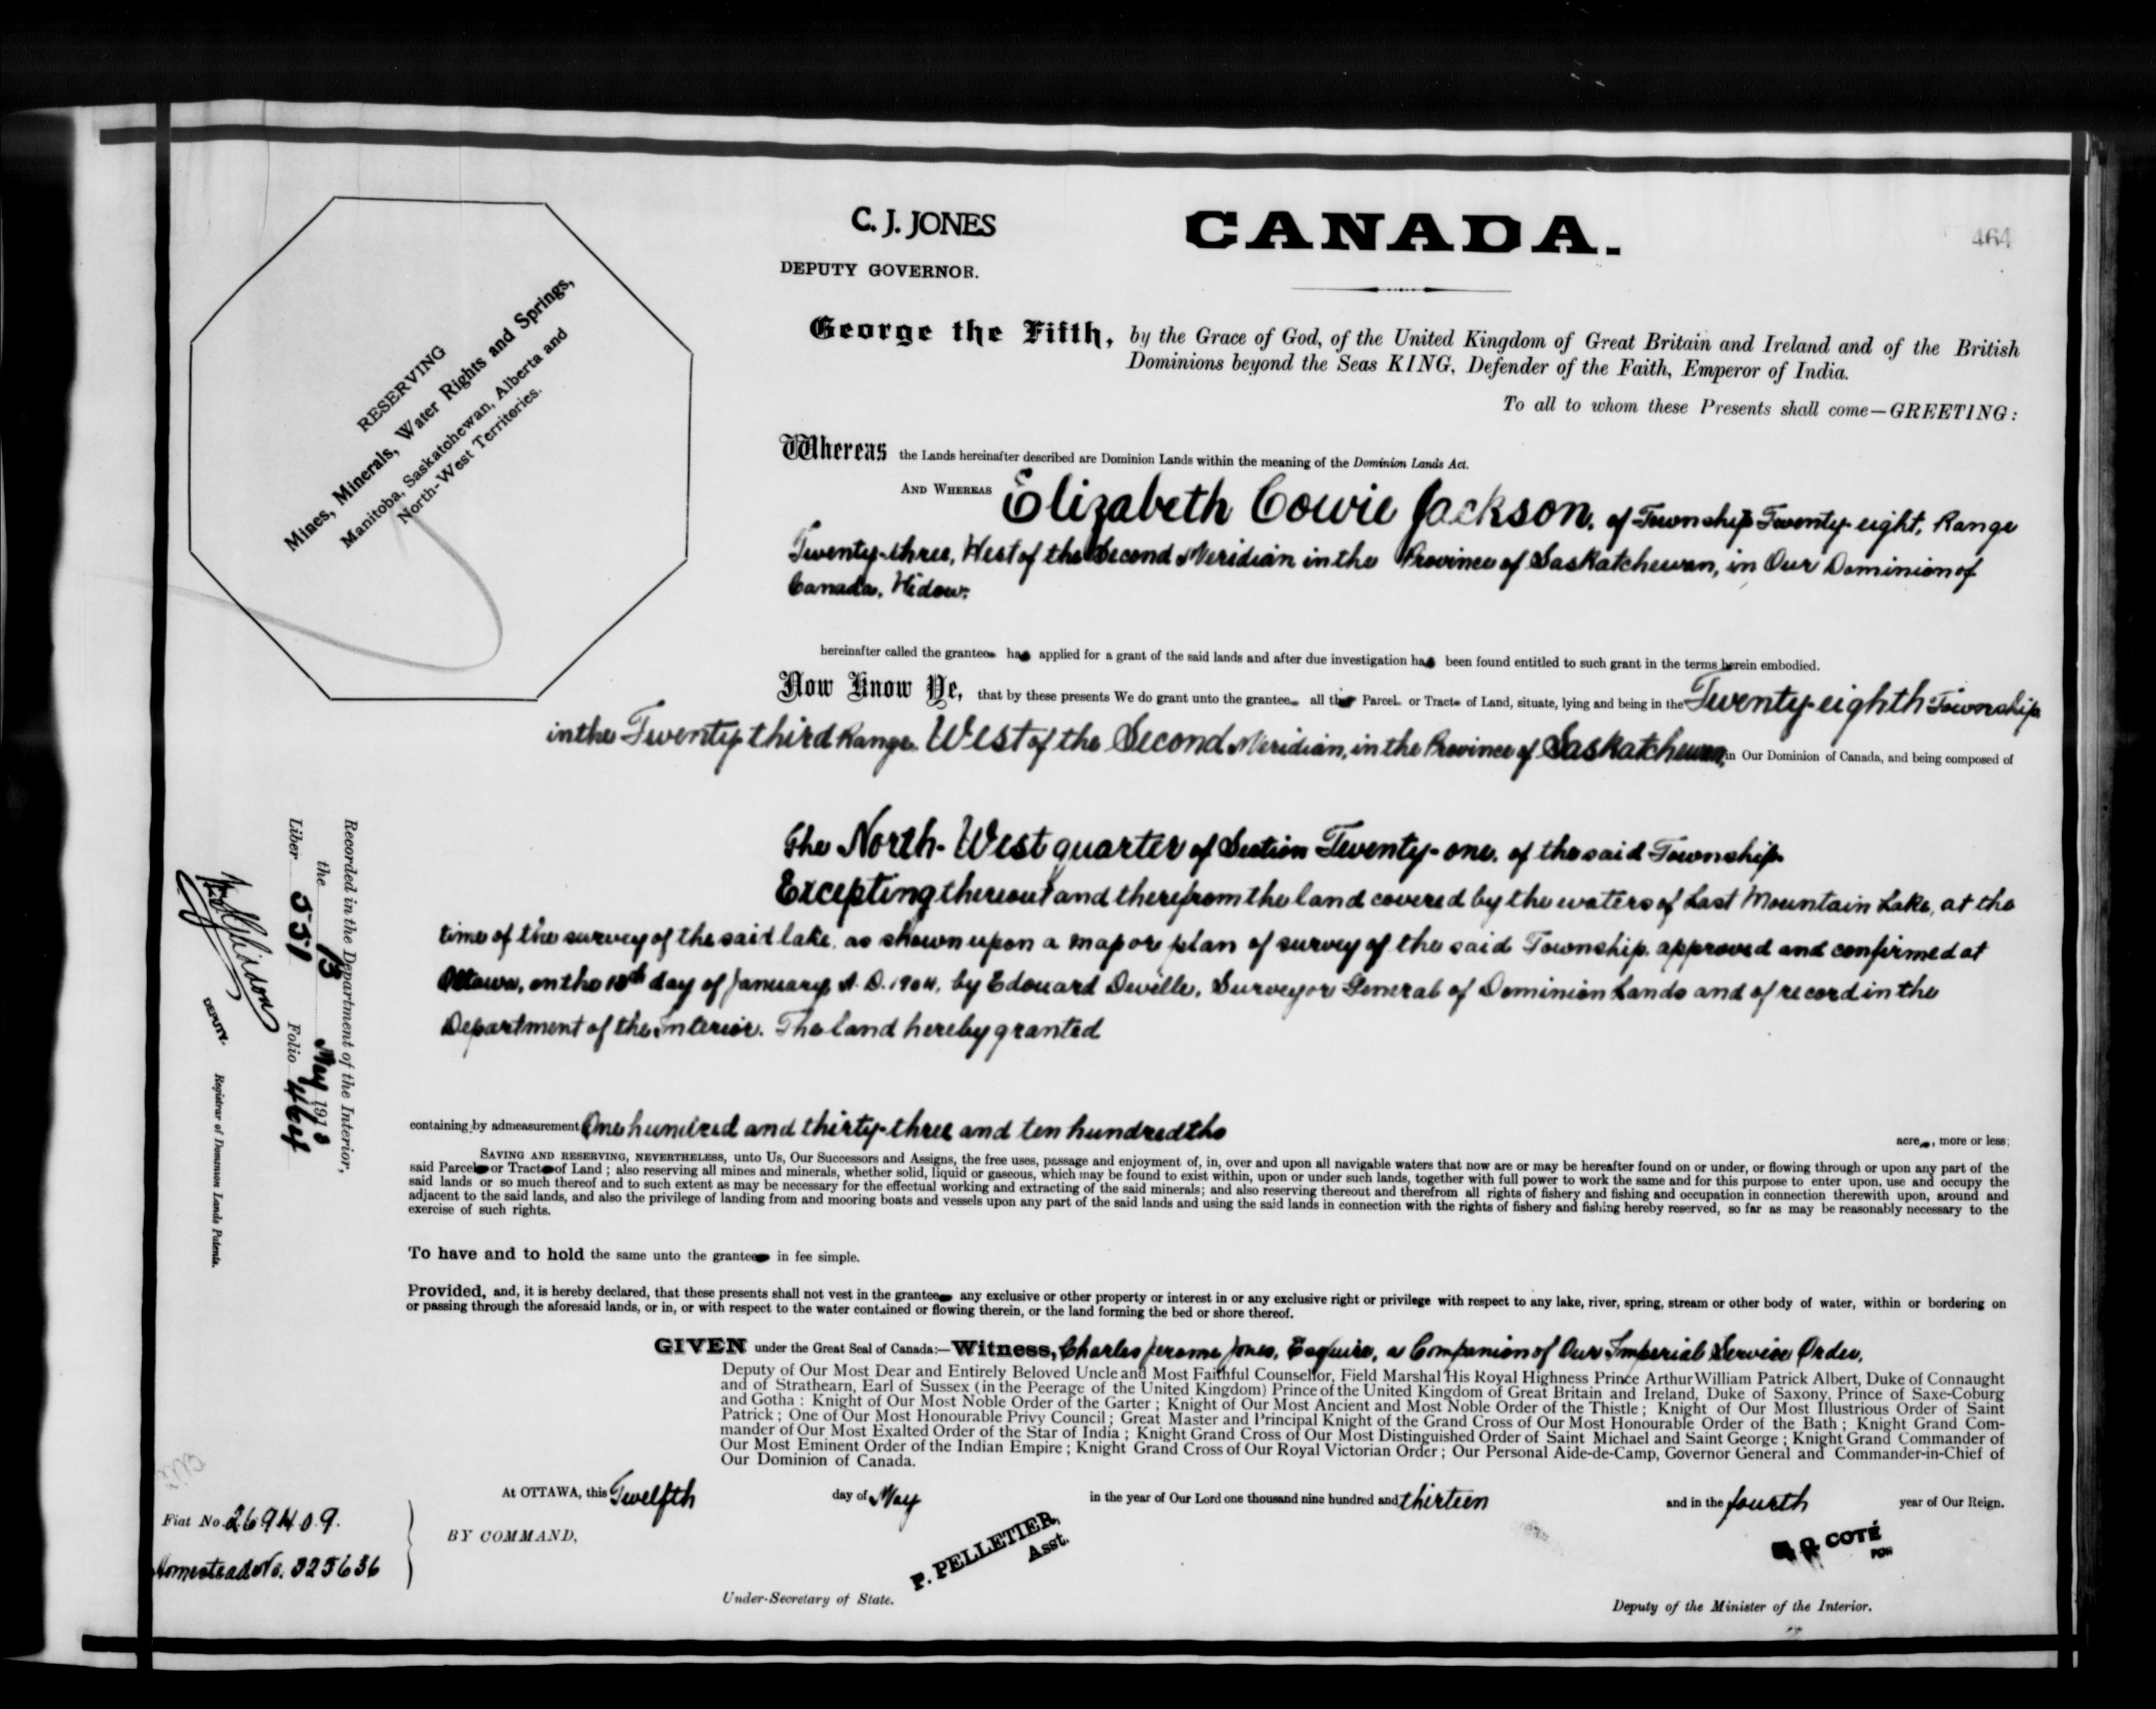 C. J. JONES
DEPUTY GOVERNOR.
CANADA.
464
RESERVING
Mines, Minerals, Water Rights and Springs,
Manitoba, Saskatchewan, Alberta and
North-West Territories.
George the Fifth, by the Grace of God, of the United Kingdom of Great Britain and Ireland and of the British
Dominions beyond the Seas KING, Defender of the Faith, Emperor of India.
To all to whom these Presents shall come—GREETING:
Whereas the Lands hereinafter described are Dominion Lands within the meaning of the Dominion Lands Act.
AND WHEREAS Elizabeth Cowie Jackson, of Township Twenty-eight, Range
Twenty-three, West of the Second Meridian in the Province of Saskatchewan, in Our Dominion of
Canada, Widow.
hereinafter called the grantee has applied for a grant of the said lands and after due investigation has been found entitled to such grant in the terms herein embodied.
Now Know Ye, that by these presents We do grant unto the grantee all that Parcel or Tract of Land, situate, lying and being in the Twenty-eighth Township
in the Twenty-third Range West of the Second Meridian, in the Province of Saskatchewan, in Our Dominion of Canada, and being composed of
The North-West quarter of Section Twenty-one, of the said Township.
Excepting thereout and therefrom the land covered by the waters of Last Mountain Lake, at the
time of the survey of the said lake, as shown upon a map or plan of survey of the said Township, approved and confirmed at
Ottawa, on the day of January, A. D. 1904, by Edouard Deville, Surveyor General of Dominion Lands and of record in the
Department of the Interior. The land hereby granted
containing by admeasurement One hundred and thirty-three and ten hundredths acres, more or less;
SAVING AND RESERVING, NEVERTHELESS, unto Us, Our Successors and Assigns, the free uses, passage and enjoyment of, in, over and upon all navigable waters that now are or may be hereafter found on or under, or flowing through or upon any part of the
said Parcel or Tract of Land; also reserving all mines and minerals, whether solid, liquid or gaseous, which may be found to exist within, upon or under such lands, together with full power to work the same and for this purpose to enter upon, use and occupy the
said lands or so much thereof and to such extent as may be necessary for the effectual working and extracting of the said minerals; and also reserving thereout and therefrom all rights of fishery and fishing and occupation in connection therewith upon, around and
adjacent to the said lands, and also the privilege of landing from and mooring boats and vessels upon any part of the said lands and using the said lands in connection with the rights of fishery and fishing hereby reserved, so far as may be reasonably necessary to the
exercise of such rights.
To have and to hold the same unto the grantee in fee simple.
Provided, and, it is hereby declared, that these presents shall not vest in the grantee any exclusive or other property or interest in or any exclusive right or privilege with respect to any lake, river, spring, stream or other body of water, within or bordering on
or passing through the aforesaid lands, or in, or with respect to the water contained or flowing therein, or the land forming the bed or shore thereof.
GIVEN under the Great Seal of Canada:—Witness, Charles Jerome Jones, Esquire, a Companion of Our Imperial Service Order,
Deputy of Our Most Dear and Entirely Beloved Uncle and Most Faithful Counsellor, Field Marshal His Royal Highness Prince Arthur William Patrick Albert, Duke of Connaught
and of Strathearn, Earl of Sussex (in the Peerage of the United Kingdom) Prince of the United Kingdom of Great Britain and Ireland, Duke of Saxony, Prince of Saxe-Coburg
and Gotha: Knight of Our Most Noble Order of the Garter; Knight of Our Most Ancient and Most Noble Order of the Thistle; Knight of Our Most Illustrious Order of Saint
Patrick; One of Our Most Honourable Privy Council; Great Master and Principal Knight of the Grand Cross of Our Most Honourable Order of the Bath; Knight Grand Com-
mander of Our Most Exalted Order of the Star of India; Knight Grand Cross of Our Most Distinguished Order of Saint Michael and Saint George; Knight Grand Commander of
Our Most Eminent Order of the Indian Empire; Knight Grand Cross of Our Royal Victorian Order; Our Personal Aide-de-Camp, Governor General and Commander-in-Chief of
Our Dominion of Canada.
At OTTAWA, this Twelfth day of May in the year of Our Lord one thousand nine hundred and thirteen and in the fourth year of Our Reign.
BY COMMAND,
P. PELLETIER,
Asst.
Under-Secretary of State.
COTÉ
Deputy of the Minister of the Interior.
Recorded in the Department of the Interior,
the 13 May 1913
Liber 551 Folio 464
DEPUTY.
Registrar of Dominion Lands Patents.
Fiat No. 269409.
Homestead No. 325636